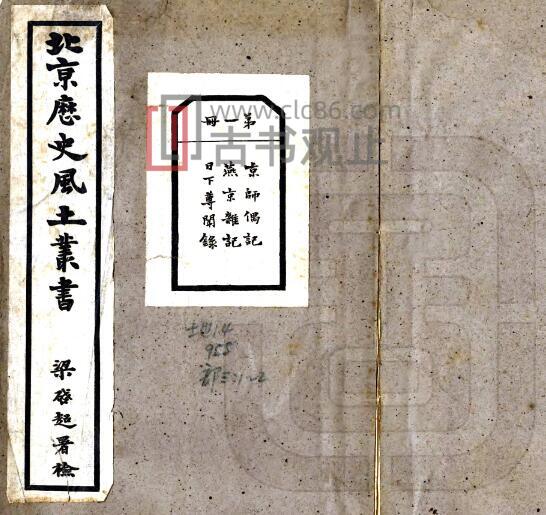 北京歷史風土叢書
梁啓超署檢
第一冊
京師偶記
燕京雜記
日下尊聞錄
www.clc86.com
古书观止
955